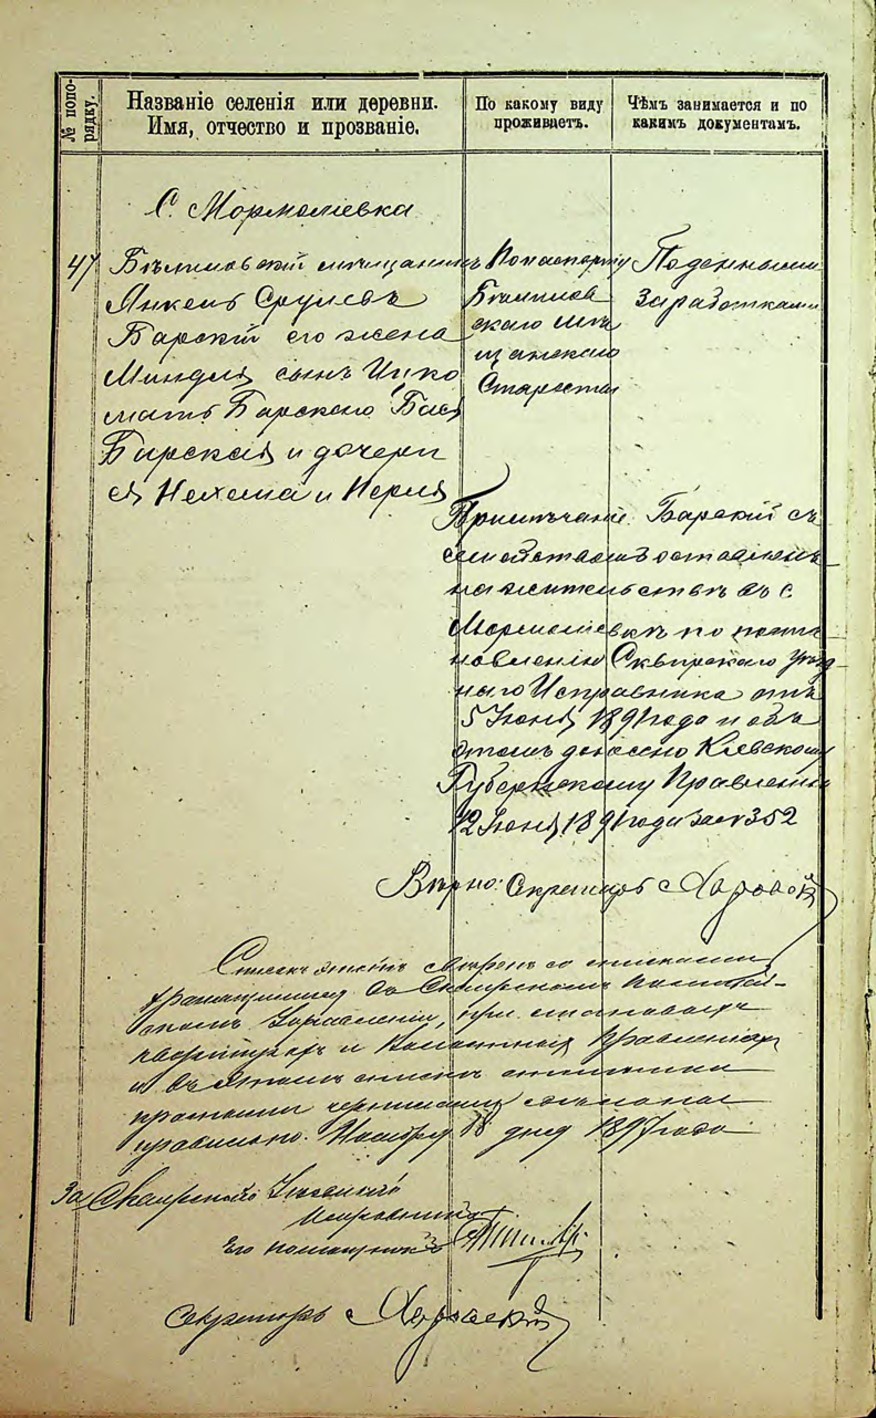 № попо-
рядку.
Названіе селенія или деревни.
Имя, отчество и прозваніе.
По какому виду
проживаетъ.
Чѣмъ занимается и по
какимъ документамъ.
С. Мормолиевка
47 Бѣлиловскій мѣщанинъ
Янкель Срулевъ
Барскій его жена
Миндля сынъ Ицко
мать Барскаго Бася
Барская и дочери
ея Нехема и Перля
По паспорту
Бѣлилов
скаго мѣ
щанскаго
Старосты
Поденными
заработками
Примѣчаніе. Барскій съ
семействомъ оставленъ
на жительствѣ въ с.
Мормолиевкѣ по поста
новленію Сквирскаго уѣзд
наго Исправника отъ
5 Іюня 1891 года и объ
этомъ донесено Кіевскому
Губернскому Правленію
12 Іюня 1891 года за № 352
Вѣрно: Секретарь
Списокъ этотъ свѣренъ со списками,
хранящимися въ Сквирскомъ Полицей-
скомъ Управленіи, при становыхъ
квартирахъ и Волостныхъ Правленіяхъ
и въ этомъ спискѣ отмѣтки
красными чернилами сдѣланы
правильно. Ноября 18 дня 1897 года
За Сквирскаго Уѣзднаго
Исправника
Его помощникъ
Секретарь